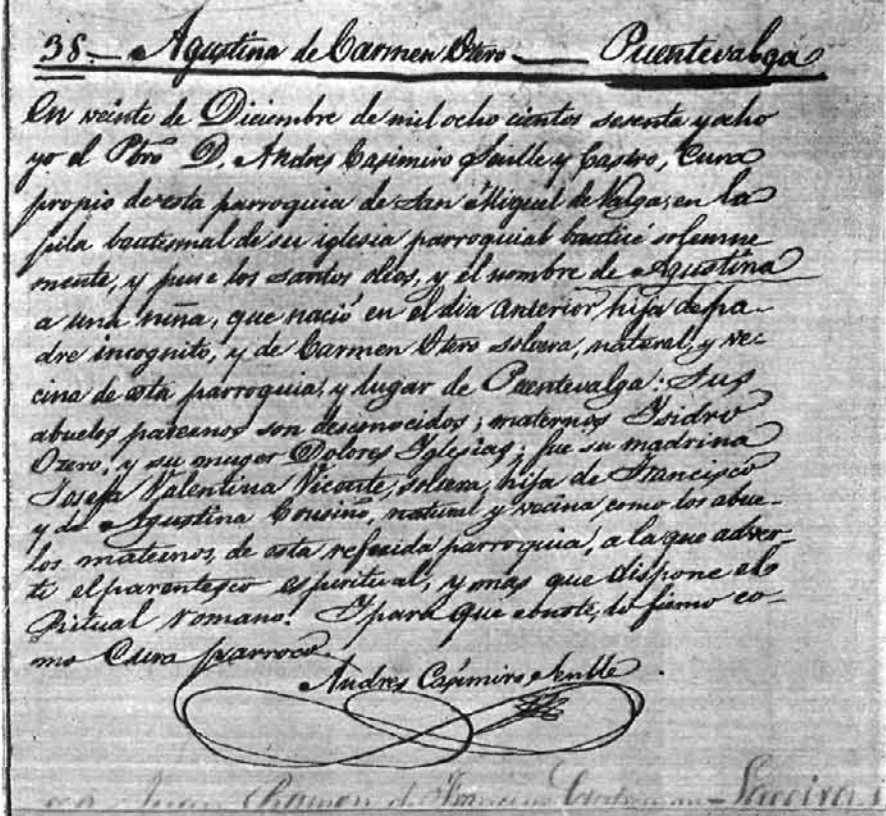 38.— Agustina de Carmen Otero.— Puentevalga
En veinte de Diciembre de mil ocho cientos sesenta y ocho
yo el Pbro D. Andres Casimiro Senlle y Castro, Cura
propio de esta parroquia de San Miguel de Valga, en la
pila bautesmal de su iglesia parroquial bauticé solemne
mente, y puse los santos oleos, y el nombre de Agustina
a una niña, que nació en el dia anterior, hija de pa-
dre incognito, y de Carmen Otero soltera, natural, y vec
cina de esta parroquia, y lugar de Puentevalga: Sus
abuelos paternos son desconocidos; maternos Isidro
Otero, y su muger Dolores Iglesias; fue su madrina
Josefa Valentina Vicente, soltera, hija de Francisco
y de Agustina Cousiño, natural y vecina, como los abue-
los maternos, de esta referida parroquia, a la que adver-
ti el parentesco espiritual, y mas que dispone el
Ritual romano. Y para que conste, lo firmo co-
mo Cura parroco.
Andres Casimiro Senlle
Juan Ramon de Francisco